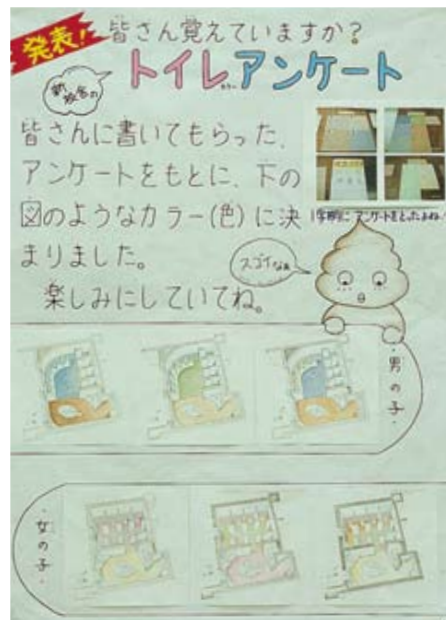 発表!
皆さん覚えていますか?
新校舎の
トイレカラーアンケート
皆さんに書いてもらった、
アンケートをもとに、下の
図のようなカラー(色)に決
まりました。
楽しみにしていてね。
1学期にアンケートをとったよね。
スゴイなぁ
・男の子・
・女の子・